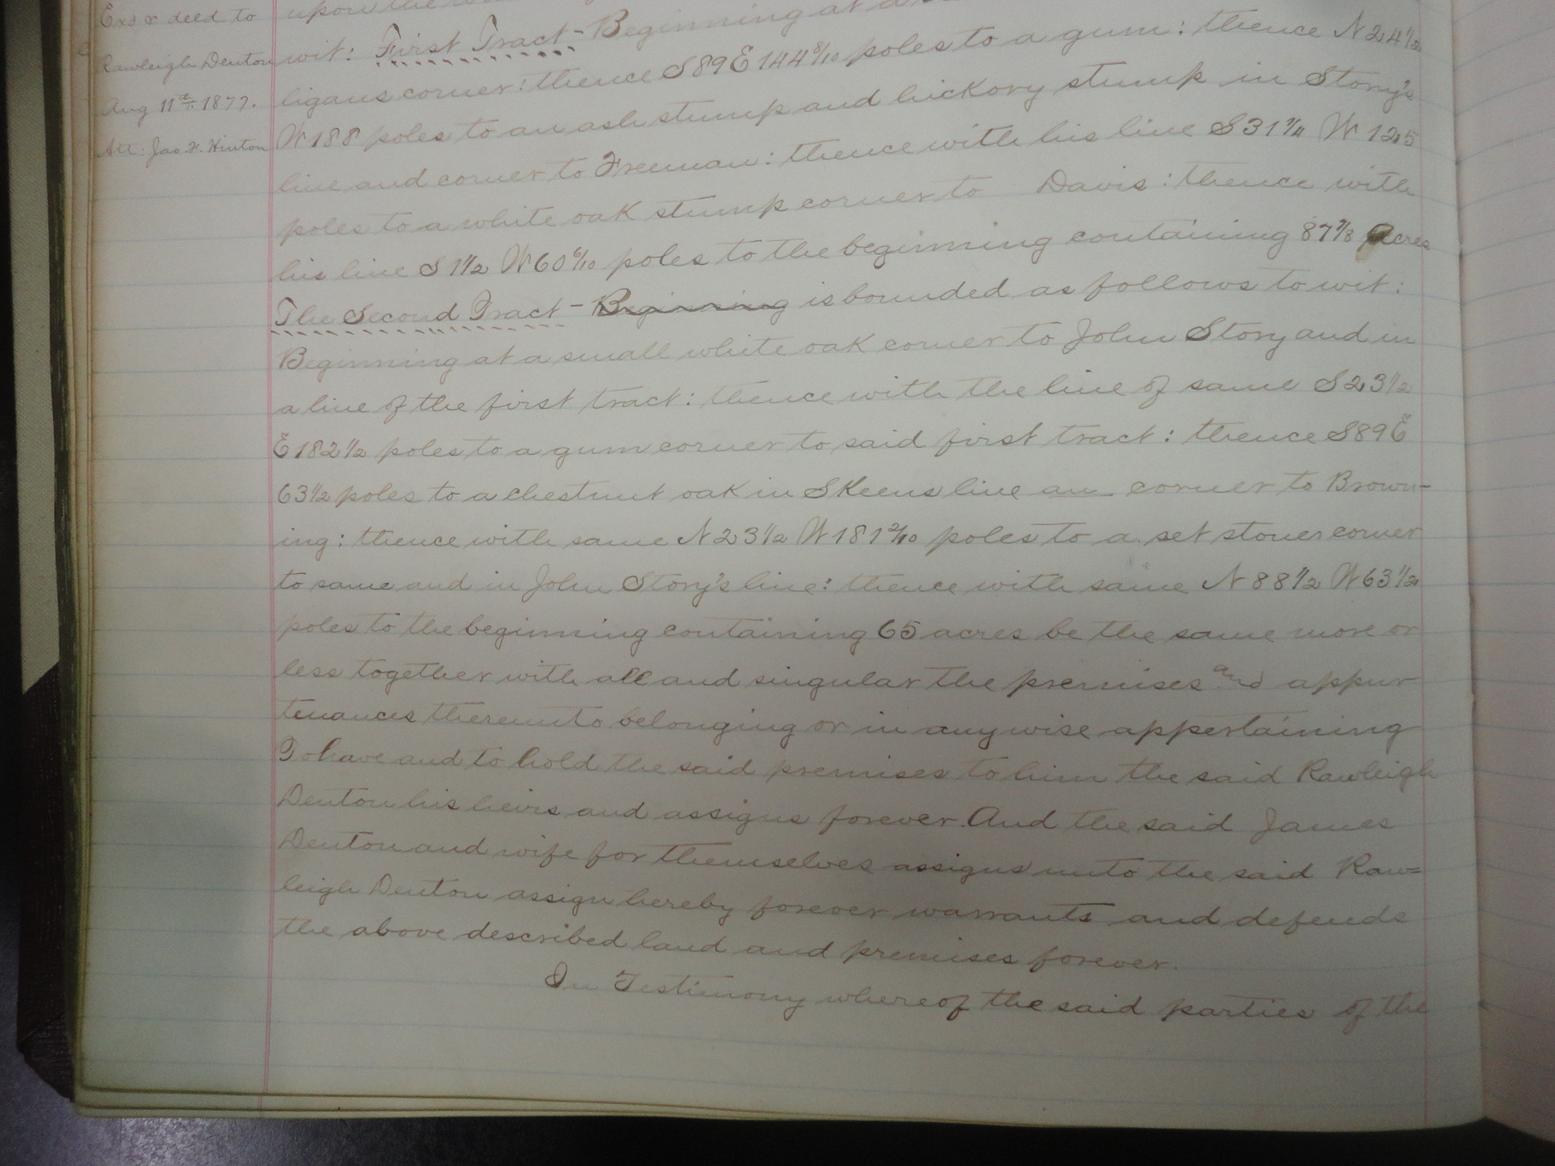 Exd & deed to
Rawleigh Denton
Aug 11th 1877.
Att: Jas. F. Hinton
upon the
wit: First Tract - Beginning at a
ligans corner: thence S89E 144 8/10 poles to a gum: thence N 24 1/2
W 188 poles to an ash stump and hickory stump in Story's
line and corner to Freeman: thence with his line S 31 3/4 W 125
poles to a white oak stump corner to Davis: thence with
his line S 1 1/2 W 60 6/10 poles to the beginning containing 87 7/8 acres
The Second Tract - Beginning is bounded as follows to wit:
Beginning at a small white oak corner to John Story and in
a line of the first tract: thence with the line of same S 23 1/2
E 182 1/2 poles to a gum corner to said first tract: thence S89E
63 1/2 poles to a chestnut oak in Skeens line an corner to Brown-
ing: thence with same N 23 1/2 W 181 2/10 poles to a set stone corner
to same and in John Story's line: thence with same N 88 1/2 W 63 1/2
poles to the beginning containing 65 acres be the same more or
less together with all and singular the premises and appur
tenances thereunto belonging or in anywise appertaining
To have and to hold the said premises to him the said Rawleigh
Denton his heirs and assigns forever. And the said James
Denton and wife for themselves assigns unto the said Raw=
leigh Denton assign hereby forever warrants and defends
the above described land and premises forever.
In Testimony whereof the said parties of the